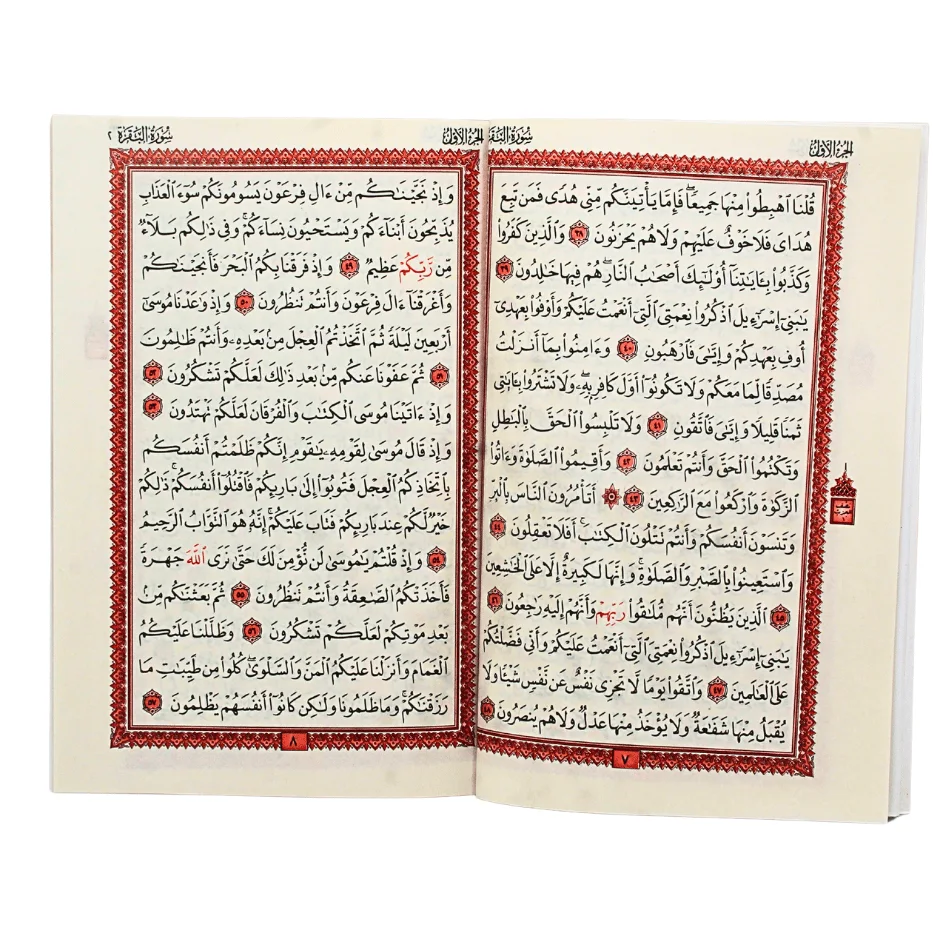 الجزء الأول
سورة البقرة
قُلْنَا ٱهْبِطُوا۟ مِنْهَا جَمِيعًۭا ۖ فَإِمَّا يَأْتِيَنَّكُم مِّنِّى هُدًۭى فَمَن تَبِعَ
هُدَاىَ فَلَا خَوْفٌ عَلَيْهِمْ وَلَا هُمْ يَحْزَنُونَ ٣٨ وَٱلَّذِينَ كَفَرُوا۟
وَكَذَّبُوا۟ بِـَٔايَـٰتِنَآ أُو۟لَـٰٓئِكَ أَصْحَـٰبُ ٱلنَّارِ ۖ هُمْ فِيهَا خَـٰلِدُونَ ٣٩
يَـٰبَنِىٓ إِسْرَٰٓءِيلَ ٱذْكُرُوا۟ نِعْمَتِىَ ٱلَّتِىٓ أَنْعَمْتُ عَلَيْكُمْ وَأَوْفُوا۟ بِعَهْدِىٓ
أُوفِ بِعَهْدِكُمْ وَإِيَّـٰىَ فَٱرْهَبُونِ ٤٠ وَءَامِنُوا۟ بِمَآ أَنزَلْتُ
مُصَدِّقًۭا لِّمَا مَعَكُمْ وَلَا تَكُونُوٓا۟ أَوَّلَ كَافِرٍۭ بِهِۦ ۖ وَلَا تَشْتَرُوا۟ بِـَٔايَـٰتِى
ثَمَنًۭا قَلِيلًۭا وَإِيَّـٰىَ فَٱتَّقُونِ ٤١ وَلَا تَلْبِسُوا۟ ٱلْحَقَّ بِٱلْبَـٰطِلِ
وَتَكْتُمُوا۟ ٱلْحَقَّ وَأَنتُمْ تَعْلَمُونَ ٤٢ وَأَقِيمُوا۟ ٱلصَّلَوٰةَ وَءَاتُوا۟
ٱلزَّكَوٰةَ وَٱرْكَعُوا۟ مَعَ ٱلرَّٰكِعِينَ ٤٣ ۞ أَتَأْمُرُونَ ٱلنَّاسَ بِٱلْبِرِّ
وَتَنسَوْنَ أَنفُسَكُمْ وَأَنتُمْ تَتْلُونَ ٱلْكِتَـٰبَ ۚ أَفَلَا تَعْقِلُونَ ٤٤
وَٱسْتَعِينُوا۟ بِٱلصَّبْرِ وَٱلصَّلَوٰةِ ۚ وَإِنَّهَا لَكَبِيرَةٌ إِلَّا عَلَى ٱلْخَـٰشِعِينَ
٤٥ ٱلَّذِينَ يَظُنُّونَ أَنَّهُم مُّلَـٰقُوا۟ رَبِّهِمْ وَأَنَّهُمْ إِلَيْهِ رَٰجِعُونَ ٤٦
يَـٰبَنِىٓ إِسْرَٰٓءِيلَ ٱذْكُرُوا۟ نِعْمَتِىَ ٱلَّتِىٓ أَنْعَمْتُ عَلَيْكُمْ وَأَنِّى فَضَّلْتُكُمْ
عَلَى ٱلْعَـٰلَمِينَ ٤٧ وَٱتَّقُوا۟ يَوْمًۭا لَّا تَجْزِى نَفْسٌ عَن نَّفْسٍۢ شَيْـًۭٔا وَلَا
يُقْبَلُ مِنْهَا شَفَـٰعَةٌۭ وَلَا يُؤْخَذُ مِنْهَا عَدْلٌۭ وَلَا هُمْ يُنصَرُونَ ٤٨
٧
الجزء الأول
سورة البقرة ٢
وَإِذْ نَجَّيْنَـٰكُم مِّنْ ءَالِ فِرْعَوْنَ يَسُومُونَكُمْ سُوٓءَ ٱلْعَذَابِ
يُذَبِّحُونَ أَبْنَآءَكُمْ وَيَسْتَحْيُونَ نِسَآءَكُمْ ۚ وَفِى ذَٰلِكُم بَلَآءٌۭ
مِّن رَّبِّكُمْ عَظِيمٌۭ ٤٩ وَإِذْ فَرَقْنَا بِكُمُ ٱلْبَحْرَ فَأَنجَيْنَـٰكُمْ
وَأَغْرَقْنَآ ءَالَ فِرْعَوْنَ وَأَنتُمْ تَنظُرُونَ ٥٠ وَإِذْ وَٰعَدْنَا مُوسَىٰٓ
أَرْبَعِينَ لَيْلَةًۭ ثُمَّ ٱتَّخَذْتُمُ ٱلْعِجْلَ مِنۢ بَعْدِهِۦ وَأَنتُمْ ظَـٰلِمُونَ
٥١ ثُمَّ عَفَوْنَا عَنكُم مِّنۢ بَعْدِ ذَٰلِكَ لَعَلَّكُمْ تَشْكُرُونَ ٥٢
وَإِذْ ءَاتَيْنَا مُوسَى ٱلْكِتَـٰبَ وَٱلْفُرْقَانَ لَعَلَّكُمْ تَهْتَدُونَ ٥٣
وَإِذْ قَالَ مُوسَىٰ لِقَوْمِهِۦ يَـٰقَوْمِ إِنَّكُمْ ظَلَمْتُمْ أَنفُسَكُم
بِٱتِّخَاذِكُمُ ٱلْعِجْلَ فَتُوبُوٓا۟ إِلَىٰ بَارِئِكُمْ فَٱقْتُلُوٓا۟ أَنفُسَكُمْ ذَٰلِكُمْ
خَيْرٌۭ لَّكُمْ عِندَ بَارِئِكُمْ فَتَابَ عَلَيْكُمْ ۚ إِنَّهُۥ هُوَ ٱلتَّوَّابُ ٱلرَّحِيمُ
٥٤ وَإِذْ قُلْتُمْ يَـٰمُوسَىٰ لَن نُّؤْمِنَ لَكَ حَتَّىٰ نَرَى ٱللَّهَ جَهْرَةًۭ
فَأَخَذَتْكُمُ ٱلصَّـٰعِقَةُ وَأَنتُمْ تَنظُرُونَ ٥٥ ثُمَّ بَعَثْنَـٰكُم مِّنۢ
بَعْدِ مَوْتِكُمْ لَعَلَّكُمْ تَشْكُرُونَ ٥٦ وَظَلَّلْنَا عَلَيْكُمُ
ٱلْغَمَامَ وَأَنزَلْنَا عَلَيْكُمُ ٱلْمَنَّ وَٱلسَّلْوَىٰ ۖ كُلُوا۟ مِن طَيِّبَـٰتِ مَا
رَزَقْنَـٰكُمْ ۖ وَمَا ظَلَمُونَا وَلَـٰكِن كَانُوٓا۟ أَنفُسَهُمْ يَظْلِمُونَ ٥٧
٨